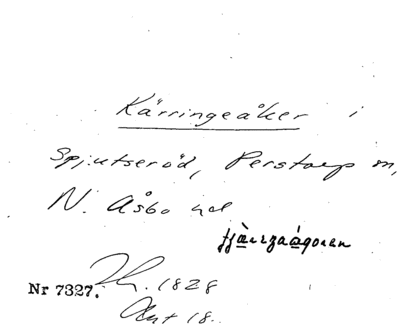 Kärringeåker i
Spjutseröd, Perstorp sn,
N. Åsbo hd
Nr 7327. 1828
Akt 18.